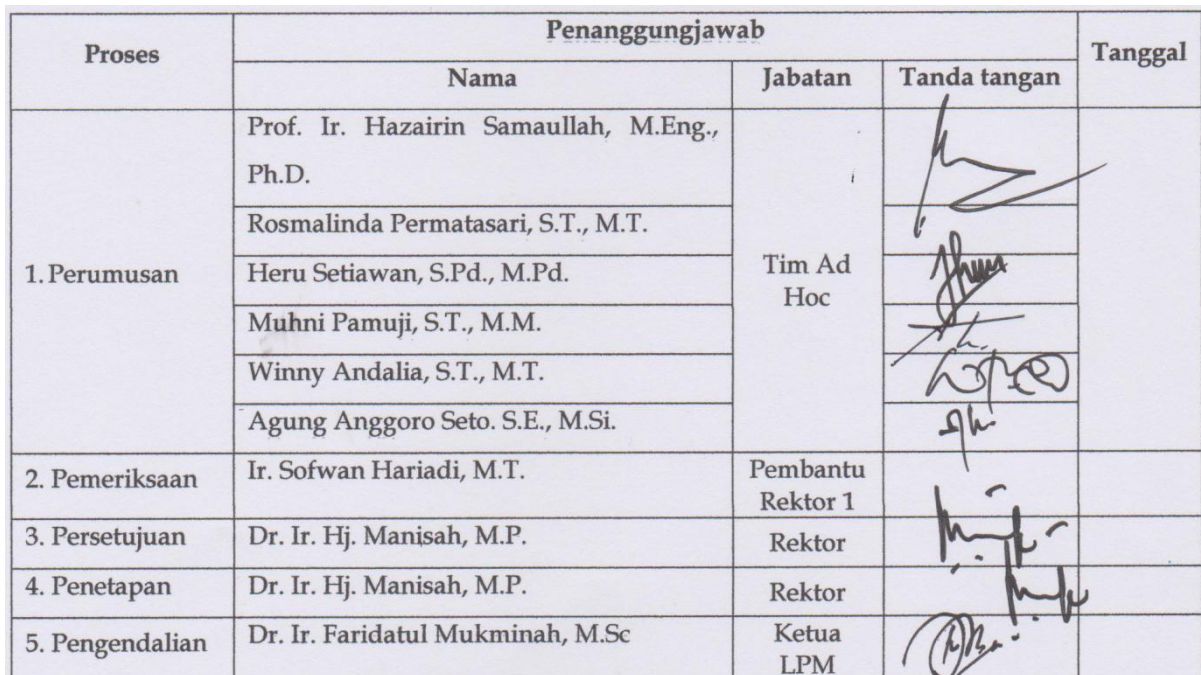 Proses Penanggungjawab Tanggal
Nama Jabatan Tanda tangan
1. Perumusan
Prof. Ir. Hazairin Samaullah, M.Eng.,
Ph.D.
Rosmalinda Permatasari, S.T., M.T.
Heru Setiawan, S.Pd., M.Pd.
Muhni Pamuji, S.T., M.M.
Winny Andalia, S.T., M.T.
Agung Anggoro Seto. S.E., M.Si.
Tim Ad
Hoc
2. Pemeriksaan Ir. Sofwan Hariadi, M.T. Pembantu
Rektor 1
3. Persetujuan Dr. Ir. Hj. Manisah, M.P. Rektor
4. Penetapan Dr. Ir. Hj. Manisah, M.P. Rektor
5. Pengendalian Dr. Ir. Faridatul Mukminah, M.Sc Ketua
LPM